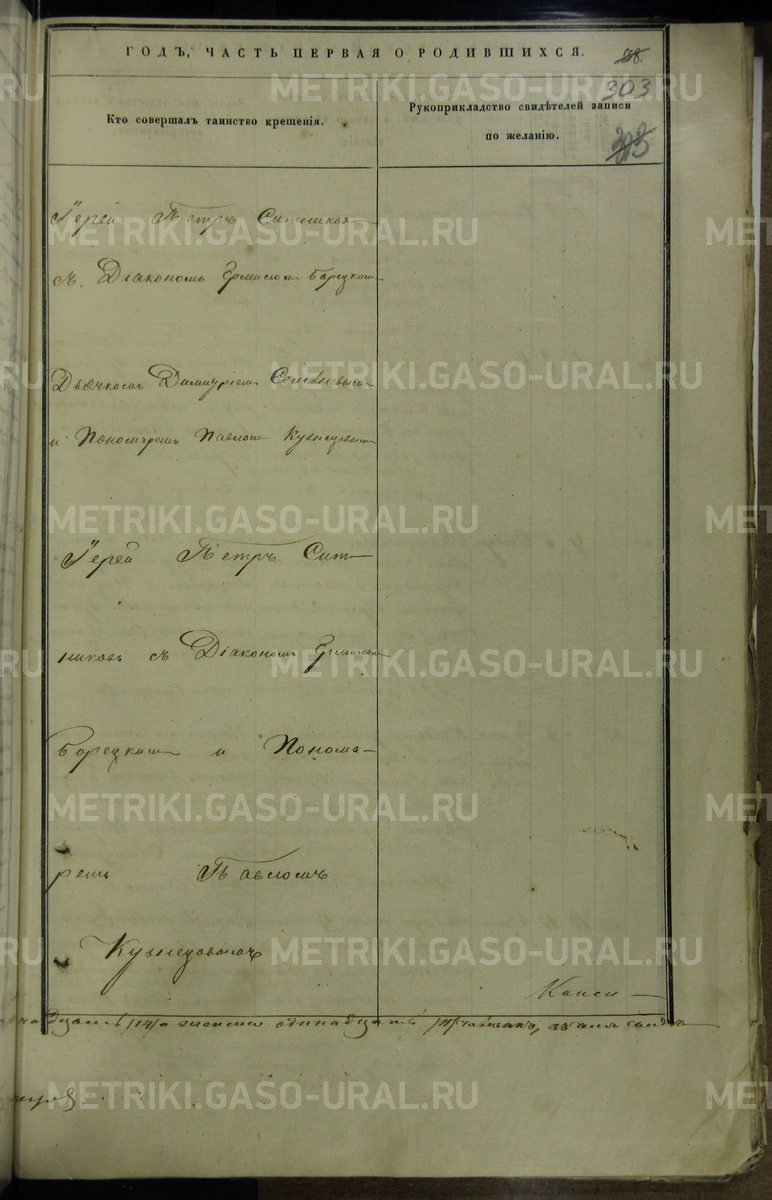 ГОДЪ, ЧАСТЬ ПЕРВАЯ О РОДИВШИХСЯ.
303
Кто совершалъ таинство крещенія.
Рукоприкладство свидѣтелей записи
по желанію.
Іерей Петръ Ситниковъ
съ Діакономъ Ермиломъ Борецкимъ
Дьячкомъ Димитріемъ
и Пономаремъ Павломъ Кузнецовымъ
Іерей Петръ Сит-
никовъ съ Діакономъ Ермиломъ
Борецкимъ и Понома-
ремъ Павломъ
Кузнецовымъ
одинадцать
METRIKI.GASO-URAL.RU